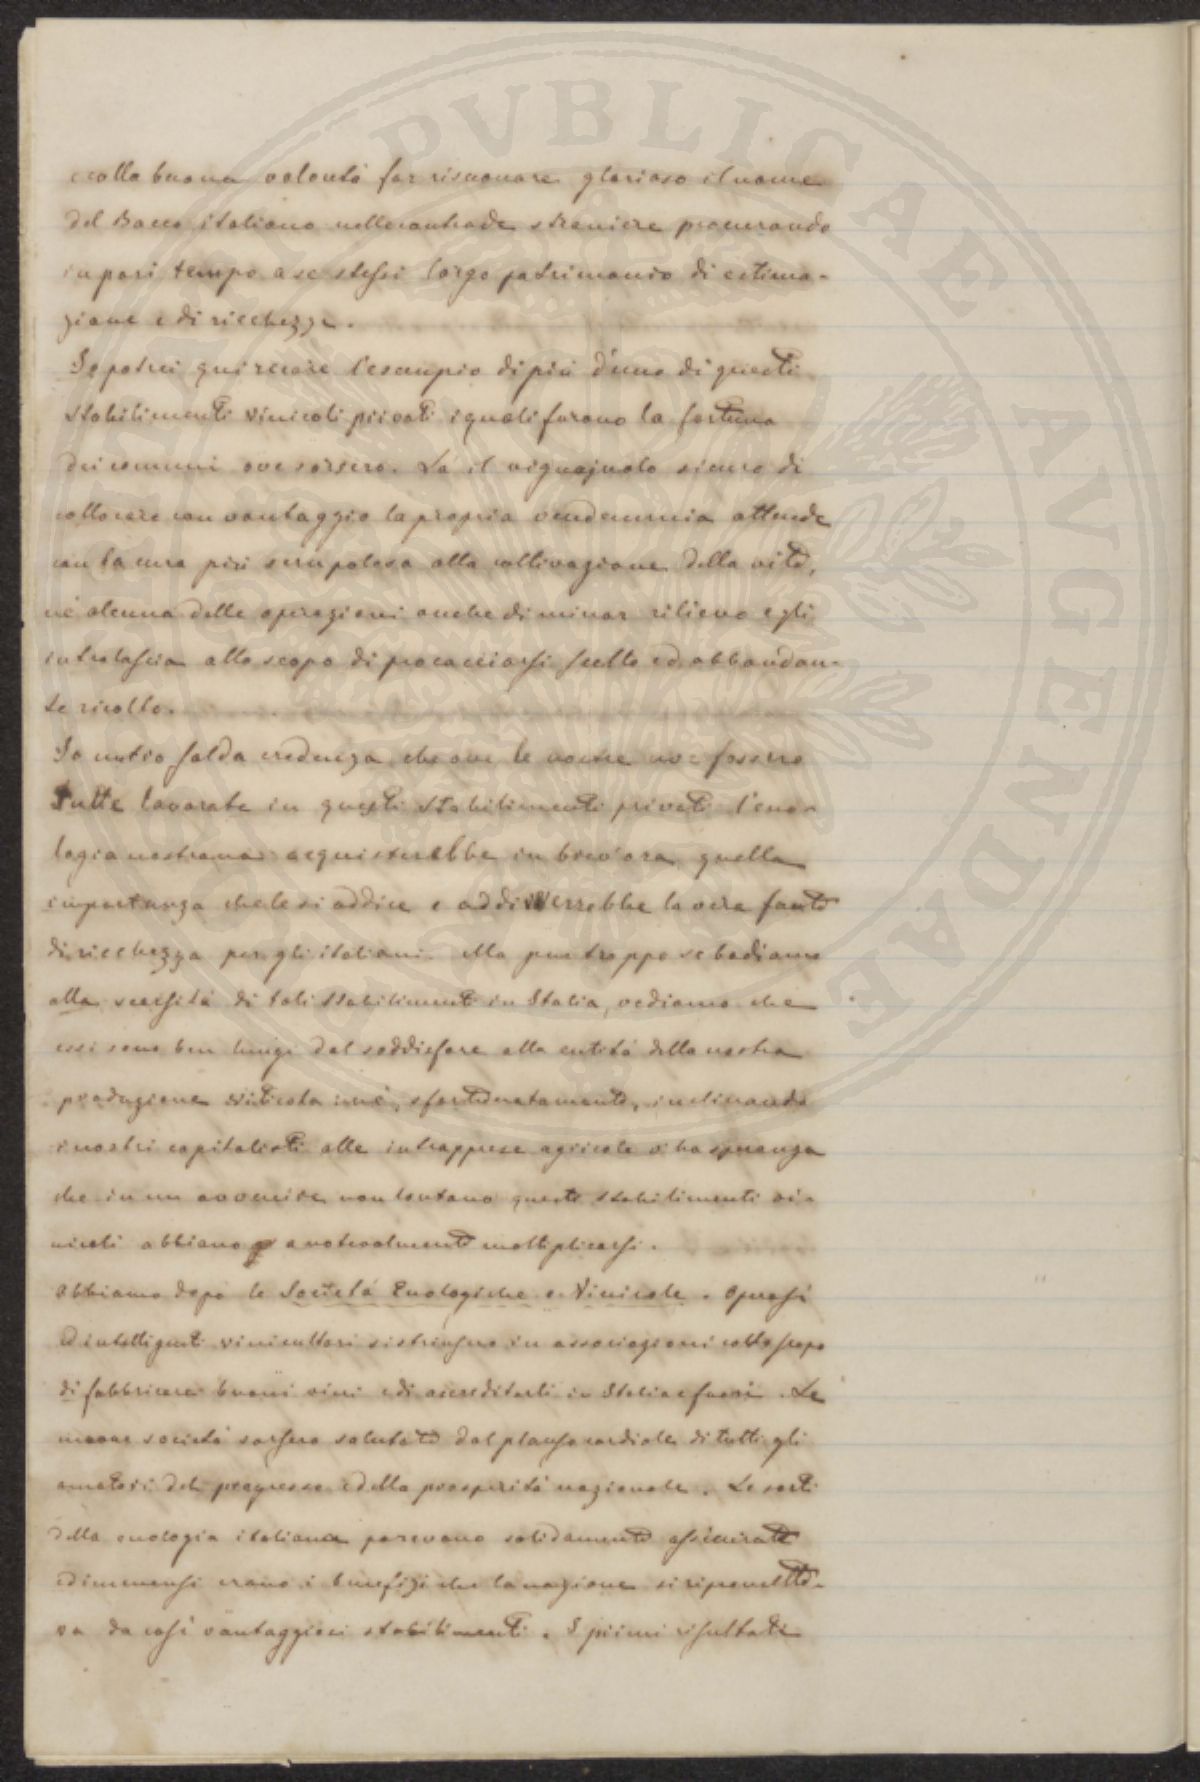 e colla buona volontà far risuonare glorioso il nome
del Bacco italiano nelle contrade straniere procurando
in pari tempo a se stessi largo patrimonio di estima-
zione e di ricchezza.
Io potrei qui recare l'esempio di più d'uno di questi
stabilimenti vinicoli privati i quali furono la fortuna
dei comuni ove sorsero. Là il vignajuolo sicuro di
collocare con vantaggio la propria vendemmia attende
con la cura più scrupolosa alla coltivazione della vite,
nè alcuna delle operazioni anche di minor rilievo egli
intralascia allo scopo di procacciarsi scelto ed abbondan-
te ricolto.
Io nutro salda credenza che ove le nostre uve fossero
tutte lavorate in questi stabilimenti privati l'eno-
logia nostrana acquisterebbe in brev'ora quella
importanza che le si addice e addiverrebbe la vera fonte
di ricchezza per gli italiani. Ma pur troppo se badiamo
alla scarsità di tali stabilimenti in Italia, vediamo che
essi sono ben lungi dal soddisfare alla entità della nostra
produzione viticola: nè, sfortunatamente, inclinando
i nostri capitalisti alle intrapprese agricole v'ha speranza
che in un avvenire non lontano questi stabilimenti vi-
nicoli abbiano a notevolmente moltiplicarsi.
Abbiamo dopo le Società Enologiche e Vinicole. Operosi
ed intelligenti vinicultori si strinsero in associazioni collo scopo
di fabbricare buoni vini e di accreditarli in Italia e fuori. Le
nuove società sorsero salutate dal plauso cordiale di tutti gli
amatori del progresso e della prosperità nazionale. Le sorti
della enologia italiana parevano solidamente assicurate
ed immensi erano i benefizi che la nazione si ripromette-
va da così vantaggiosi stabilimenti. I primi risultati
PVBLICAE AVGENDAE